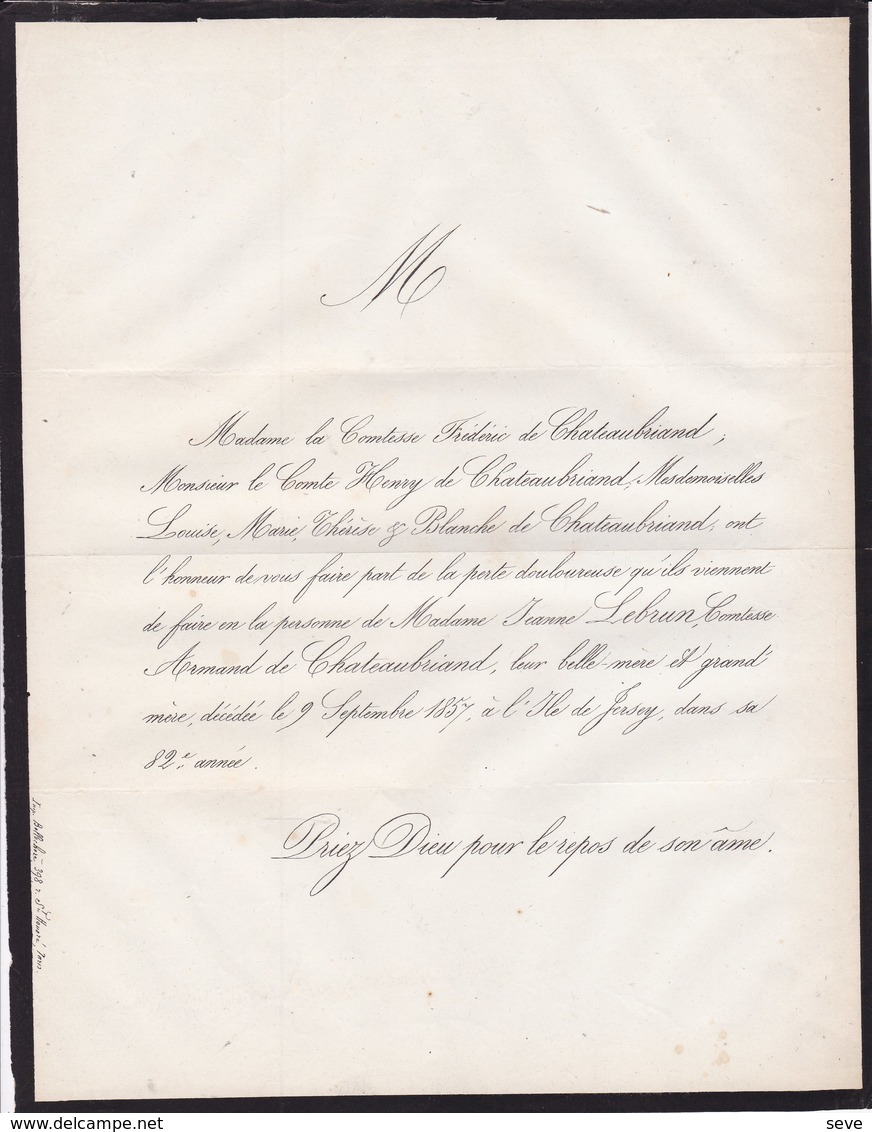 M
Madame la Comtesse Frédéric de Chateaubriand,
Monsieur le Comte Henry de Chateaubriand, Mesdemoiselles
Louise, Marie, Thérèse & Blanche de Chateaubriand, ont
l'honneur de vous faire part de la perte douloureuse qu'ils viennent
de faire en la personne de Madame Jeanne Lebrun, Comtesse
Armand de Chateaubriand, leur belle-mère et grand'
mère, décédée le 9 Septembre 1857, à l'Ile de Jersey, dans sa
82e. année.
Priez Dieu pour le repos de son âme.
Imp. 398 r. St. Honoré, Paris.
delcampe.net
seve